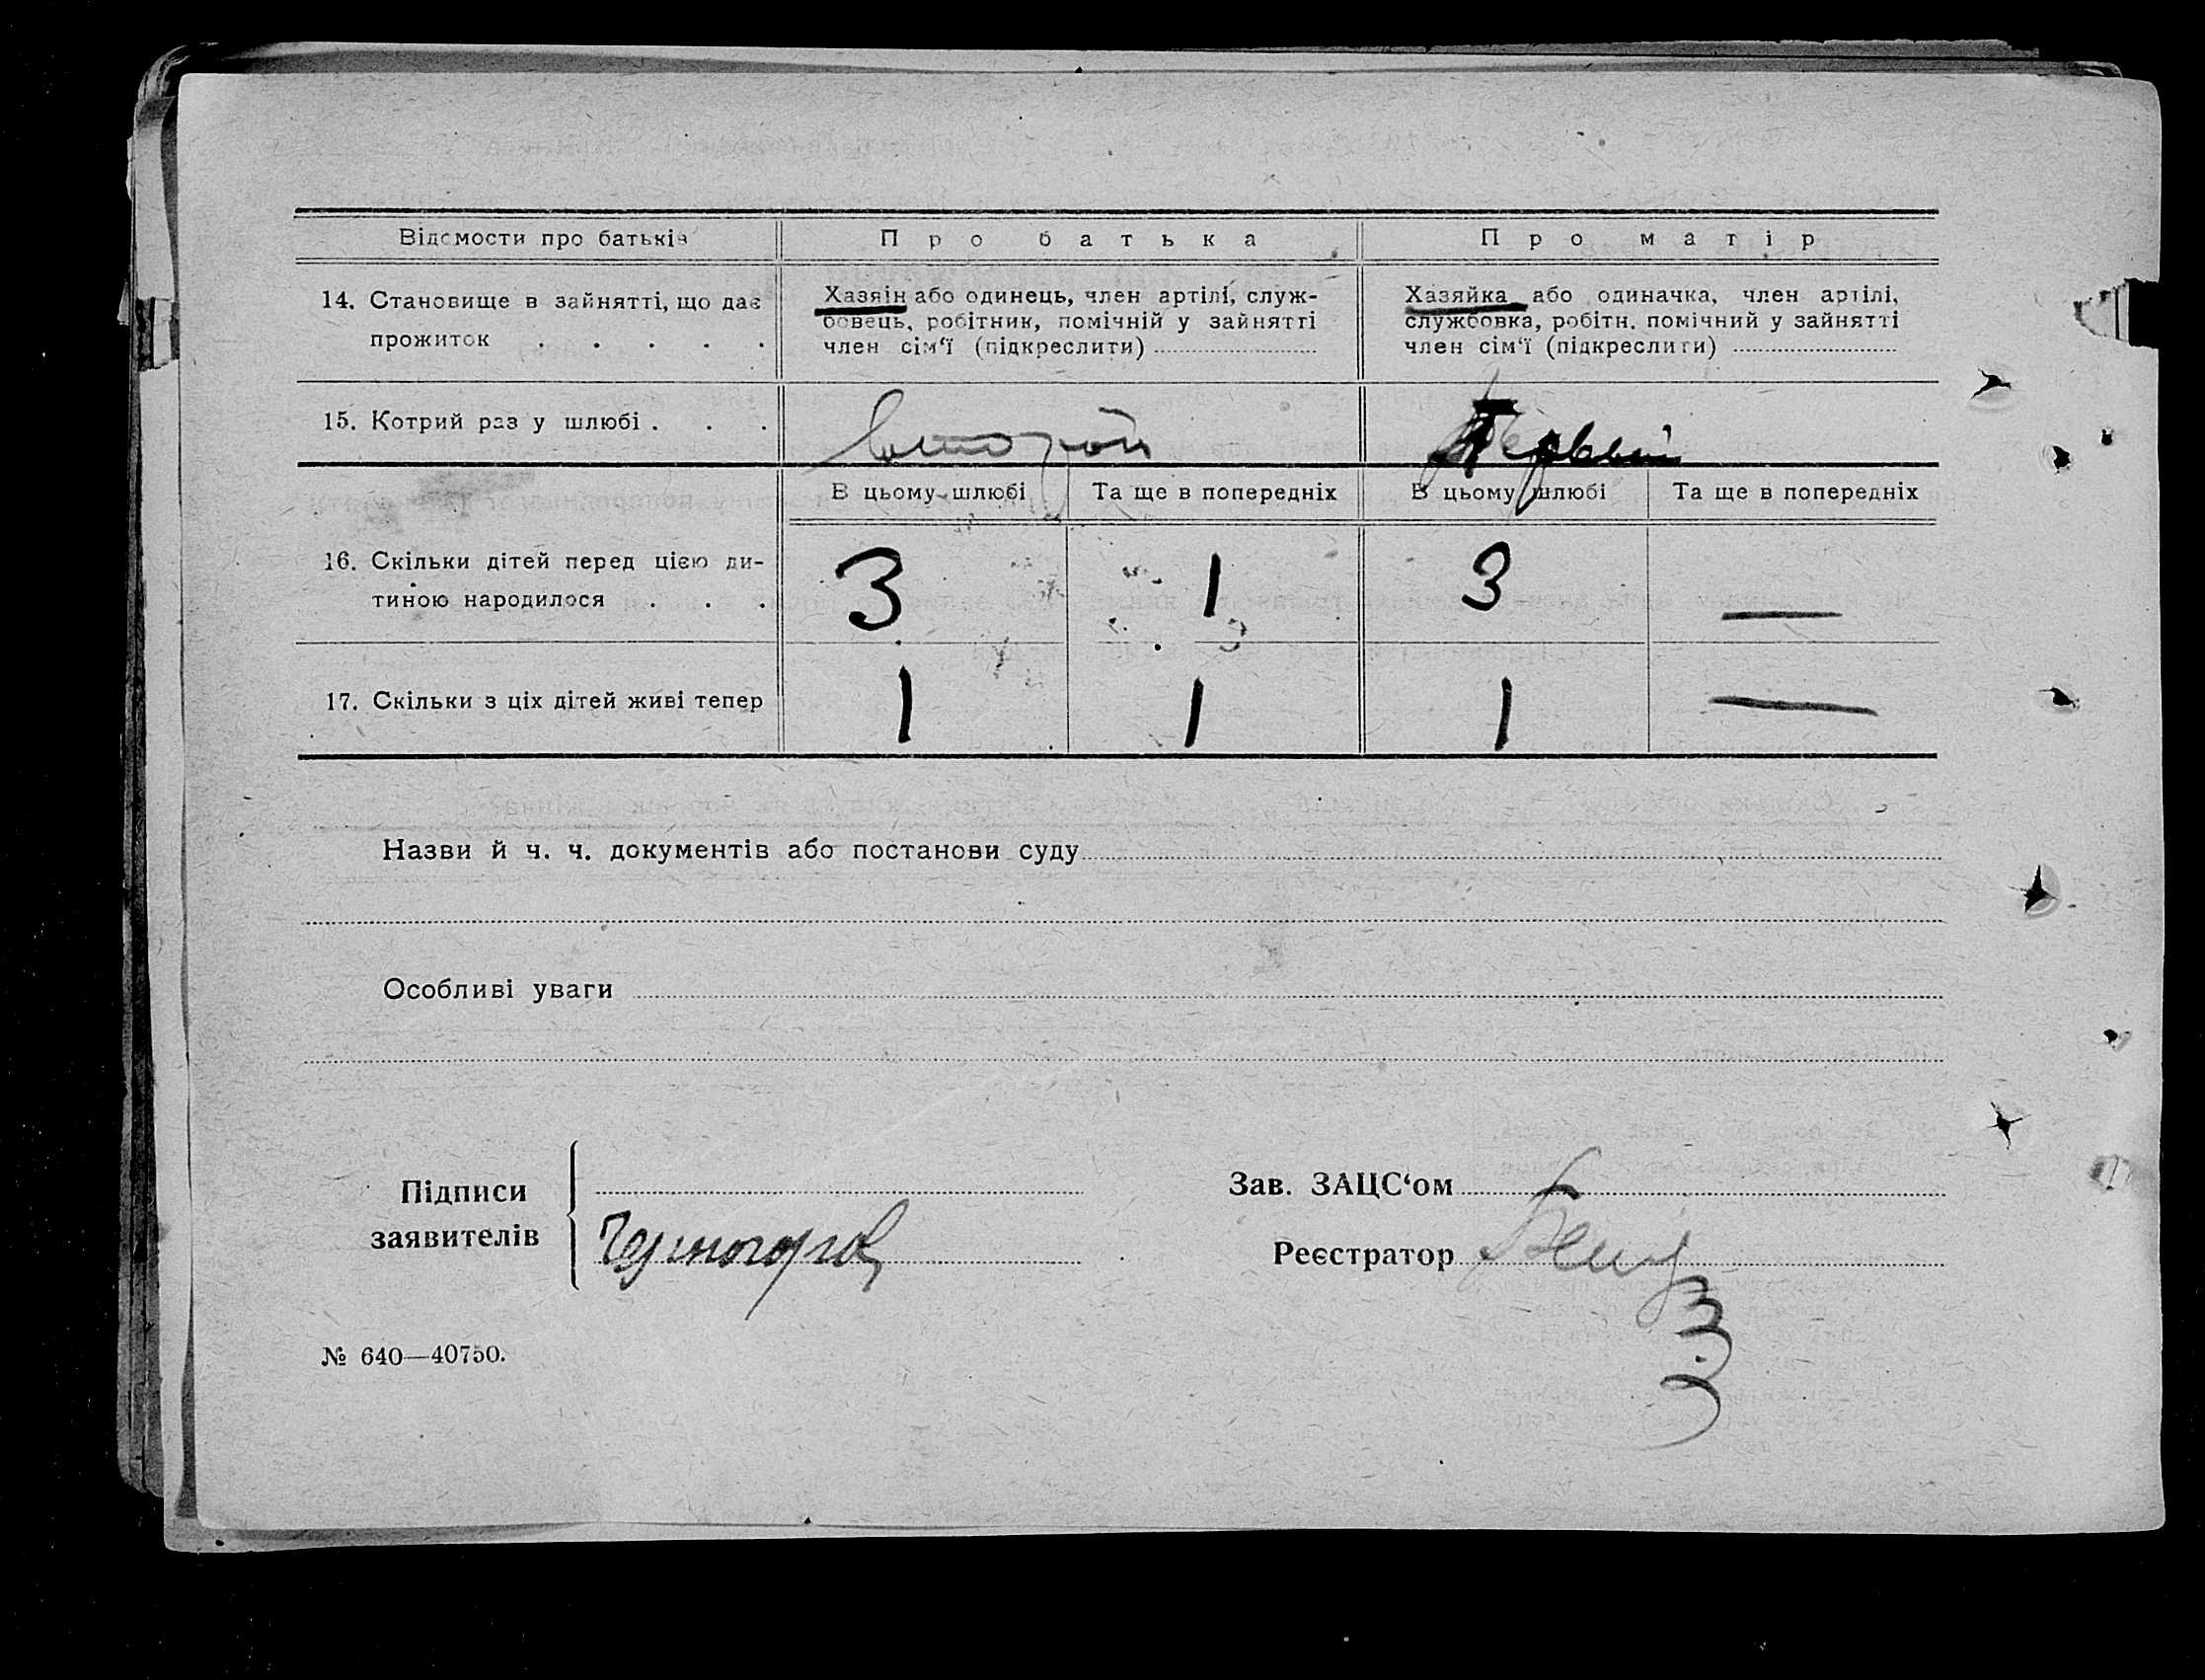 Відомости про батьків
Про батька
Про матір
14. Становище в зайнятті, що дає
прожиток . . . . .
Хазяін або одинець, член артілі, служ-
бовець, робітник, помічній у зайнятті
член сім‘ї (підкреслити)
Хазяйка або одиначка, член артілі,
службовка, робітн. помічний у зайнятті
член сім‘ї (підкреслити)
15. Котрий раз у шлюбі . . .
второй
Первый
В цьому шлюбі
Та ще в попередніх
В цьому шлюбі
Та ще в попередніх
16. Скільки дітей перед цією ди-
тиною народилося . . .
3
1
3
—
17. Скільки з ціх дітей живі тепер
1
1
1
—
Назви й ч. ч. документів або постанови суду
Особливі уваги
Підписи
заявителів
Зав. ЗАЦС‘ом
Реєстратор
№ 640—40750.